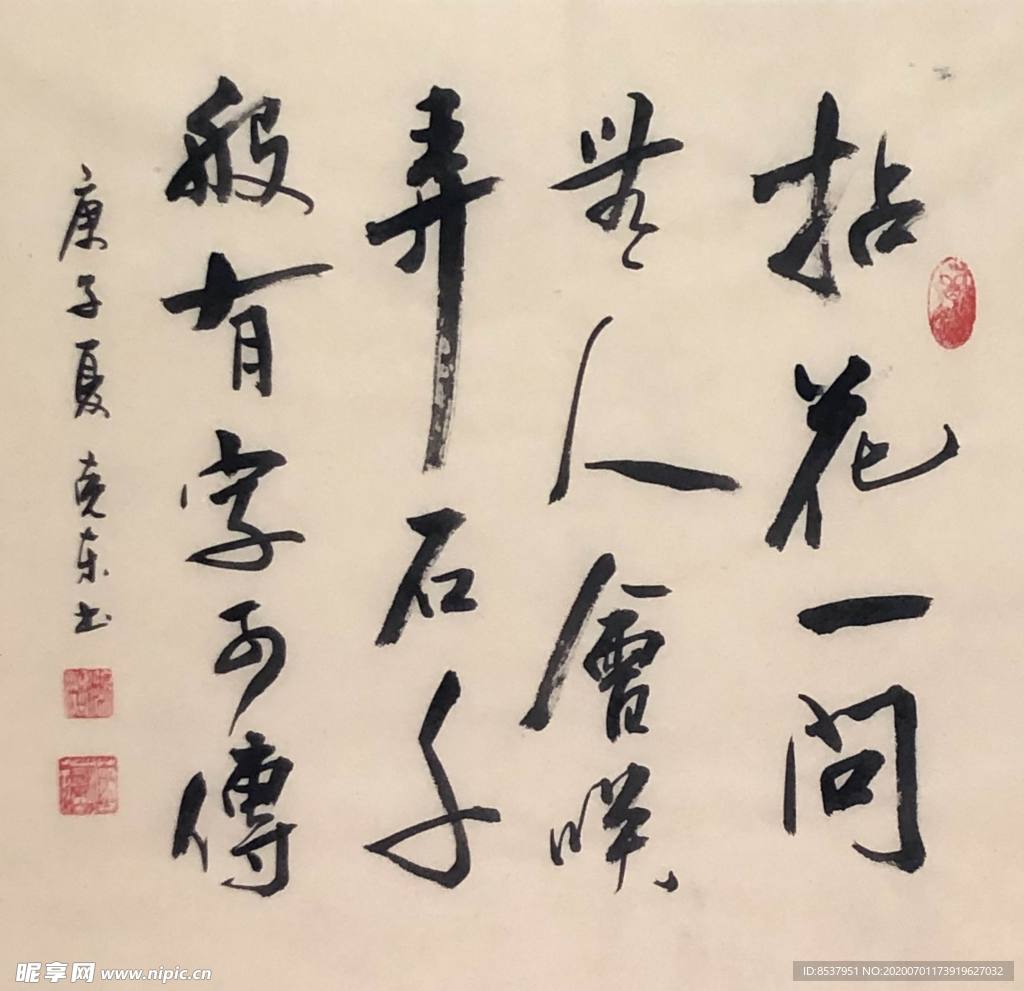 拈花一问
无人会𠸄
弄石千
般有字可傳
庚子夏克东书
昵享网 www.nipic.cn
ID:8537951 NO:20200701173919627032